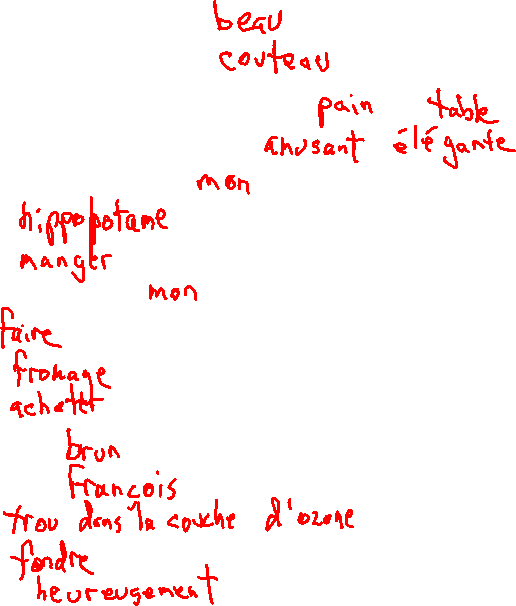 beau
couteau
pain table
amusant élégante
mon
hippopotame
manger
mon
faire
fromage
acheter
brun
François
trou dans la couche d'ozone
fondre
heureusement